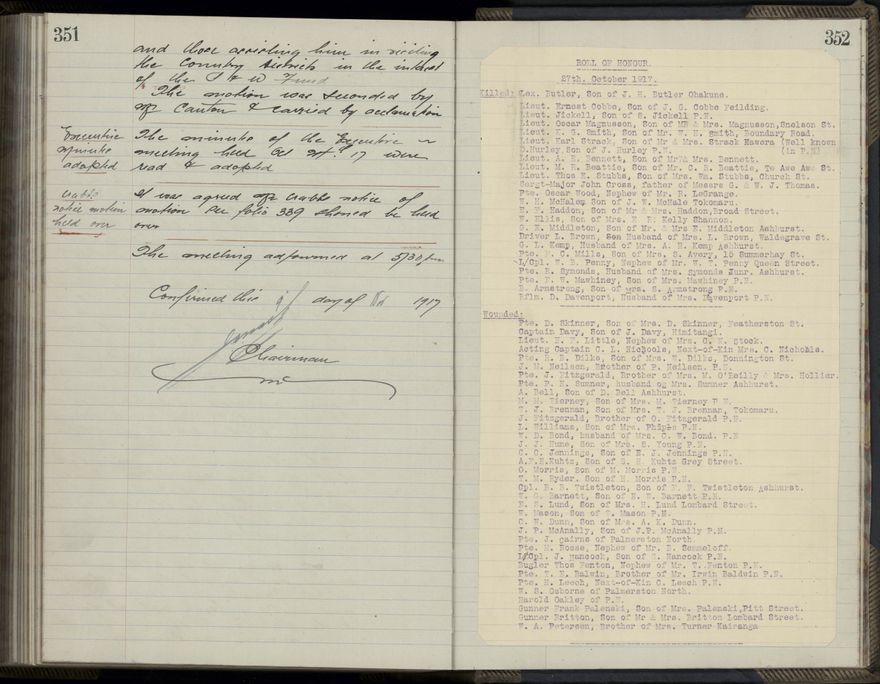 351
and those assisting him in visiting
the Country Districts in the interest
of the P & W Fund
The motion was seconded by
Mr Canton & carried by acclamation
Executive
minute
adopted
The minutes of the Executive
meeting held Oct 17 were
read & adopted
notice motion
held over
It was agreed Mr notice of
motion see folio 339 should be held
over
The meeting adjourned at 5/30 pm
Confirmed this day of 1917
Chairman
352
ROLL OF HONOUR.
27th. October 1917.
Killed: Lex. Butler, Son of J. H. Butler Ohakune.
Lieut. Ernest Cobbe, Son of J. G. Cobbe Feilding.
Lieut. Jickell, Son of S. Jickell P.N.
Lieut. Oscar Magnusson, Son of Mr & Mrs. Magnusson, Snelson St.
Lieut. K. G. Smith, Son of Mr. W. H. Smith, Boundary Road.
Lieut. Karl Strack, Son of Mr & Mrs. Strack Hawera (Well known
D. Hurley Son of J. Hurley P.N. (in P.N)
Lieut. A. H. Bennett, Son of Mr & Mrs. Bennett.
Lieut. M. H. Beattie, Son of Mr. C. S. Beattie, Te Awe Awe St.
Lieut. Thos H. Stubbs, Son of Mrs. Wm. Stubbs, Church St.
Sergt-Major John Cross, Father of Messrs G. & W. J. Thomas.
Pte. Oscar Wood, Nephew of Mr. R. LeGrange.
W. H. McHale, Son of J. W. McHale Tokomaru.
H. F. Haddon, Son of Mr & Mrs. Haddon, Broad Street.
W. Ellis, Son of Mrs. E. R. Kelly Shannon.
G. E. Middleton, Son of Mr. & Mrs E. Middleton Ashhurst.
Driver L. Brown, Husband of Mrs. L. Brown, Waldegrave St.
G. L. Kemp, Husband of Mrs. A. H. Kemp Ashhurst.
Pte. F. C. Mills, Son of Mrs. S. Avery, 15 Summerhay St.
L/Cpl. W. B. Penny, Nephew of Mr. W. T. Penny Queen Street.
Pte. R. Symonds, Husband of Mrs. Symonds Junr. Ashhurst.
Pte. F. W. Mawhiney, Son of Mrs. Mawhiney P.N.
E. Armstrong, Son of Mrs. S. Armstrong P.N.
Rflm. D. Davenport, Husband of Mrs. Davenport P.N.
Wounded:
Pte. D. Skinner, Son of Mrs. D. Skinner, Featherston St.
Captain Davy, Son of J. Davy, Himitangi.
Lieut. H. F. Little, Nephew of Mrs. G. H. Stock.
Acting Captain C. L. Nichools, Next-of-Kin Mrs. C. Nichools.
Pte. R. E. Dilks, Son of Mrs. E. Dilks, Donnington St.
J. M. Neilson, Brother of P. Neilson. P.N.
Pte. J. Fitzgerald, Brother of Mrs. M. O'Reilly & Mrs. Hollier.
Pte. P. H. Sumner, husband og Mrs. Sumner Ashhurst.
A. Bell, Son of D. Bell Ashhurst.
M. M. Tierney, Son of Mrs. M. Tierney P.N.
T. J. Brennan, Son of Mrs. T. J. Brennan, Tokomaru.
J. Fitzgerald, Brother of O. Fitzgerald P.N.
L. Williams, Son of Mrs. Phipps P.N.
W. D. Bond, husband of Mrs. C. W. Bond. P.N
J. J. Hune, Son of Mrs. S. Young P.N.
C. C. Jennings, Son of E. J. Jennings P.N.
A.F.H.Kuhtz, Son of G. H. Kuhtz Grey Street.
O. Morris, Son of M. Morris P.N
T. M. Ryder, Son of H. Morris P.N.
Cpl. B. B. Twistleton, Son of F. N. Twistleton Ashhurst.
W. G. Barnett, Son of E. W. Barnett P.N.
E. S. Lund, Son of Mrs. H. Lund Lombard Street.
W. Mason, Son of T. Mason P.N.
C. W. Dunn, Son of Mrs. A. K. Dunn.
J. P. McAnally, Son of J.P. McAnally P.N.
Pte. J. Cairns of Palmerston North.
Pte. H. Rosse, Nephew of Mr. B. Semmeloff.
L/Cpl. J. Hancock, Son of S. Hancock P.N.
Bugler Thos Fenton, Nephew of Mr. T. Fenton P.N.
Pte. T. E. Balwin, Brother of Mr. Irwin Baldwin P.N.
Pte. H. Leech, Next-of-Kin C. Leech P.N.
W. S. Osborne of Palmerston North.
Harold Oakley of P.N.
Gunner Frank Palenski, Son of Mrs. Palenski, Pitt Street.
Gunner Britton, Son of Mr & Mrs. Britton Lombard Street.
W. A. Petersen, Brother of Mrs. Turner Kairanga